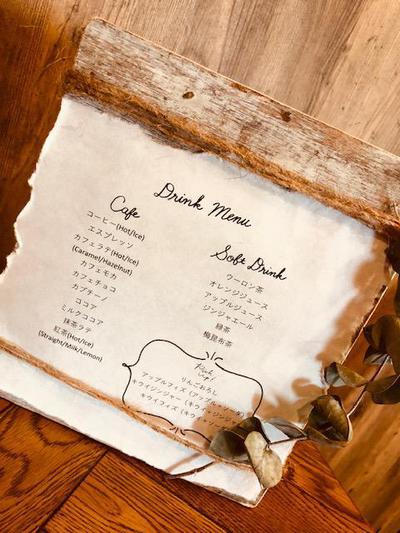 Drink Menu
Cafe
コーヒー(Hot/Ice)
エスプレッソ
カフェラテ(Hot/Ice)
(Caramel/Hazelnut)
カフェモカ
カフェチョコ
カプチーノ
ココア
ミルクココア
抹茶ラテ
紅茶(Hot/Ice)
(Straight/Milk/Lemon)
Soft Drink
ウーロン茶
オレンジジュース
アップルジュース
ジンジャエール
緑茶
梅昆布茶
Pick
Up!
りんごおろし
アップルフィズ(アップル+ソーダ)
キウイジンジャー(キウイ+ジンジャー
キウイフィズ(キウイ+ソーダ